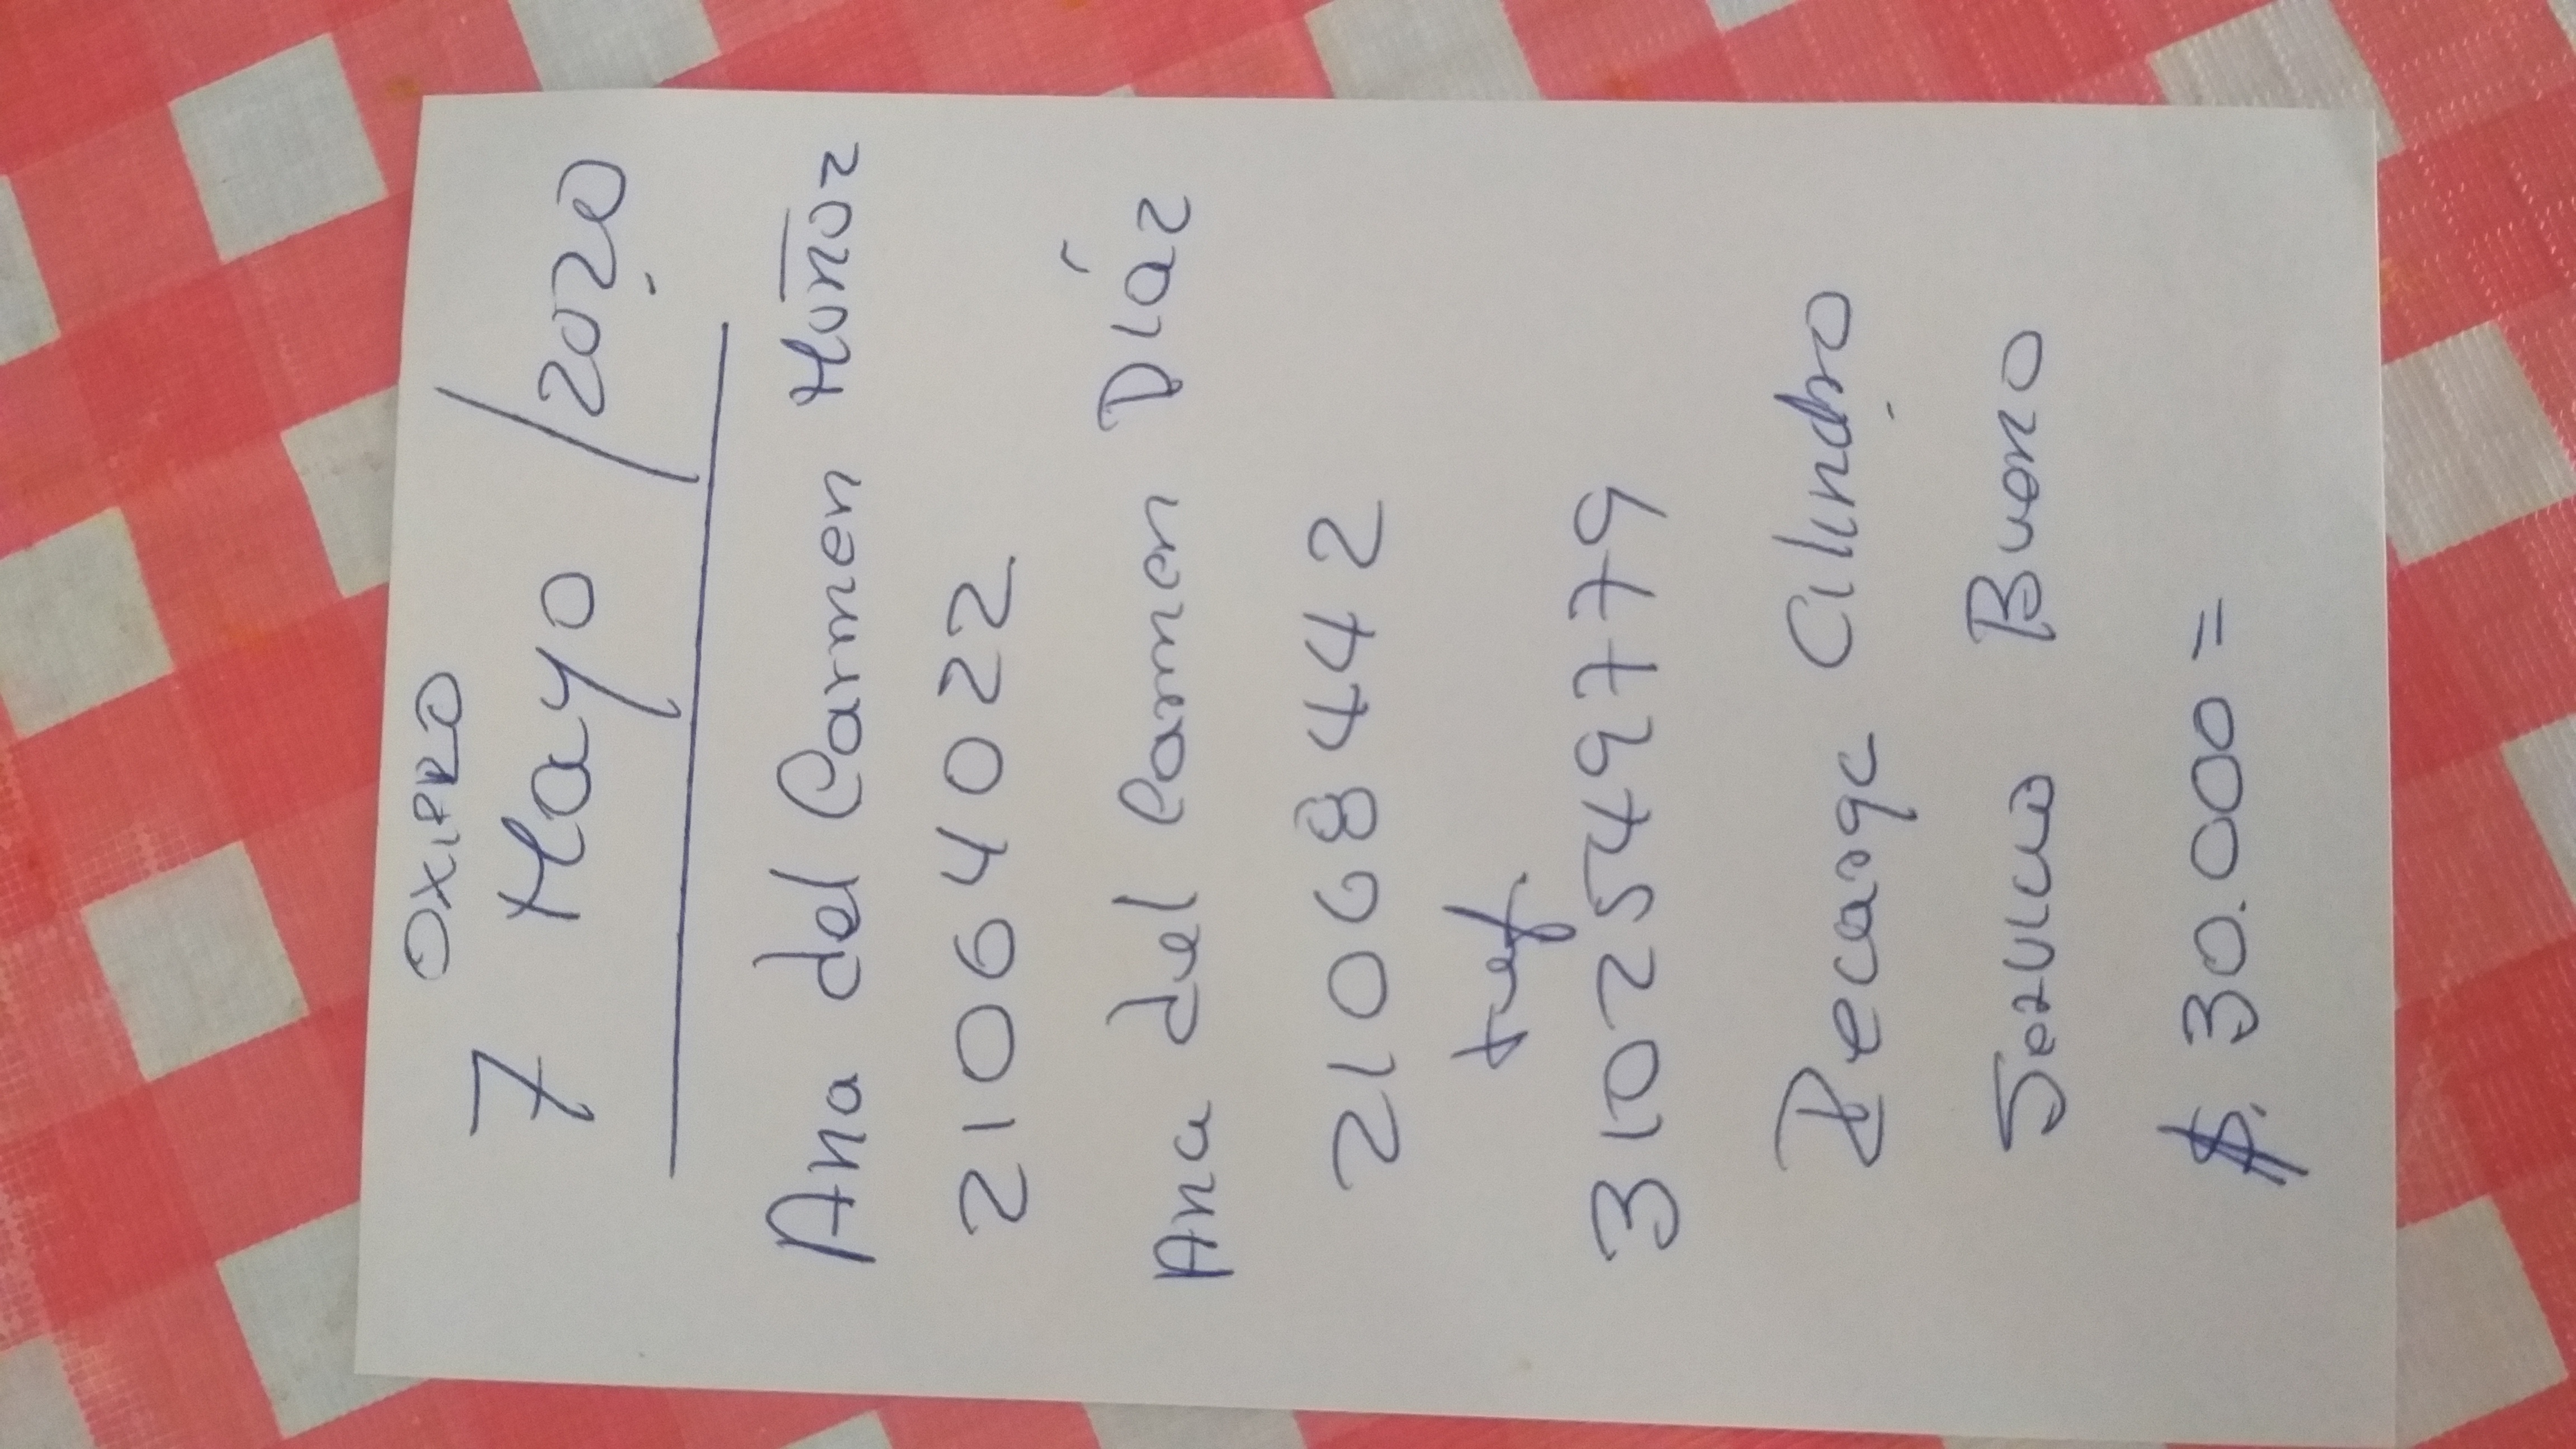 OXIPRO
7 Mayo / 2020
Ana del Carmen Muñoz
21064022
Ana del Carmen Díaz
21068442
Telf.
3102549779
Recarga Cilindro
Servicio Bueno
$. 30.000=